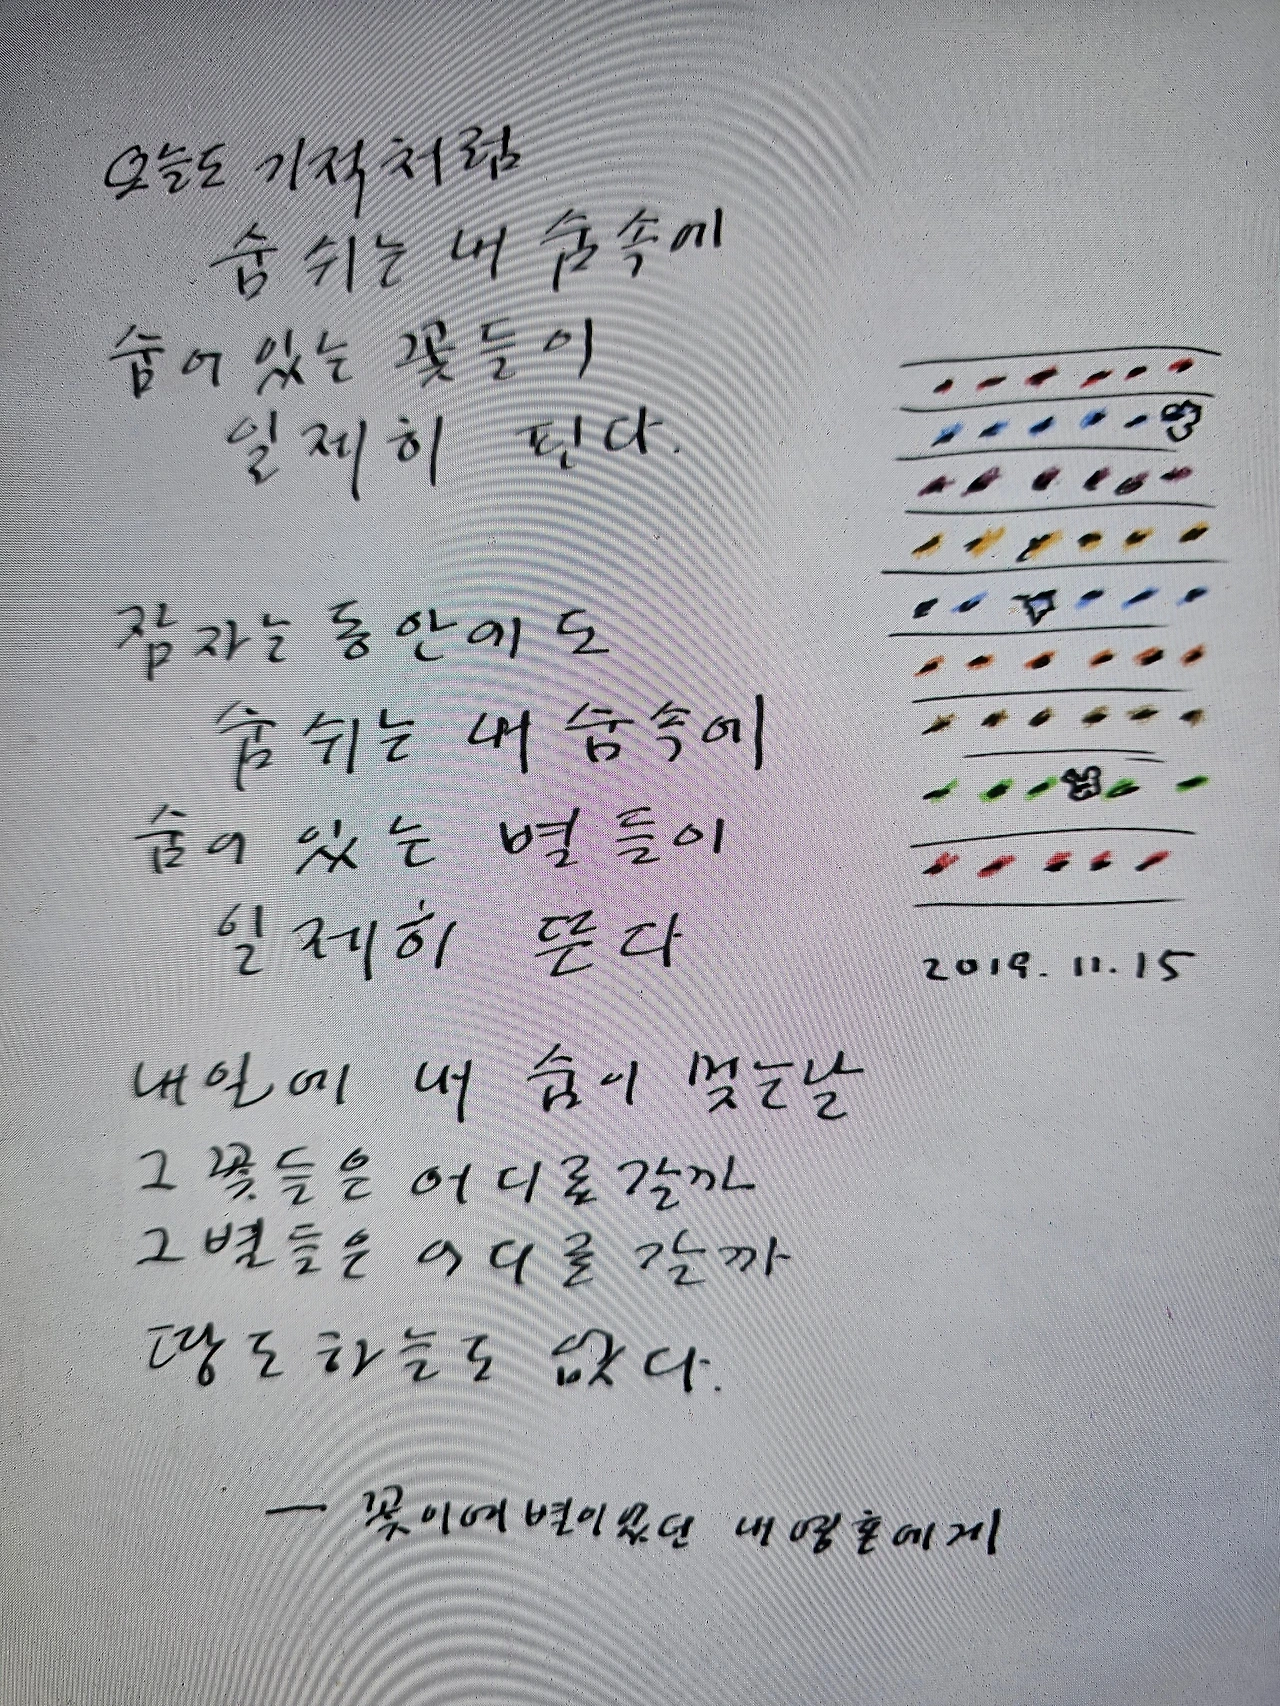 오늘도 기적처럼
숨 쉬는 내 숨속에
숨어 있는 꽃들이
일제히 핀다.
잠자는 동안에도
숨 쉬는 내 숨속에
숨어 있는 별들이
일제히 뜬다
2019. 11. 15
내일에 내 숨이 멎는날
그 꽃들은 어디로 갈까
그 별들은 어디로 갈까
땅도 하늘도 없다.
— 꽃이며 별이었던 내 영혼에게